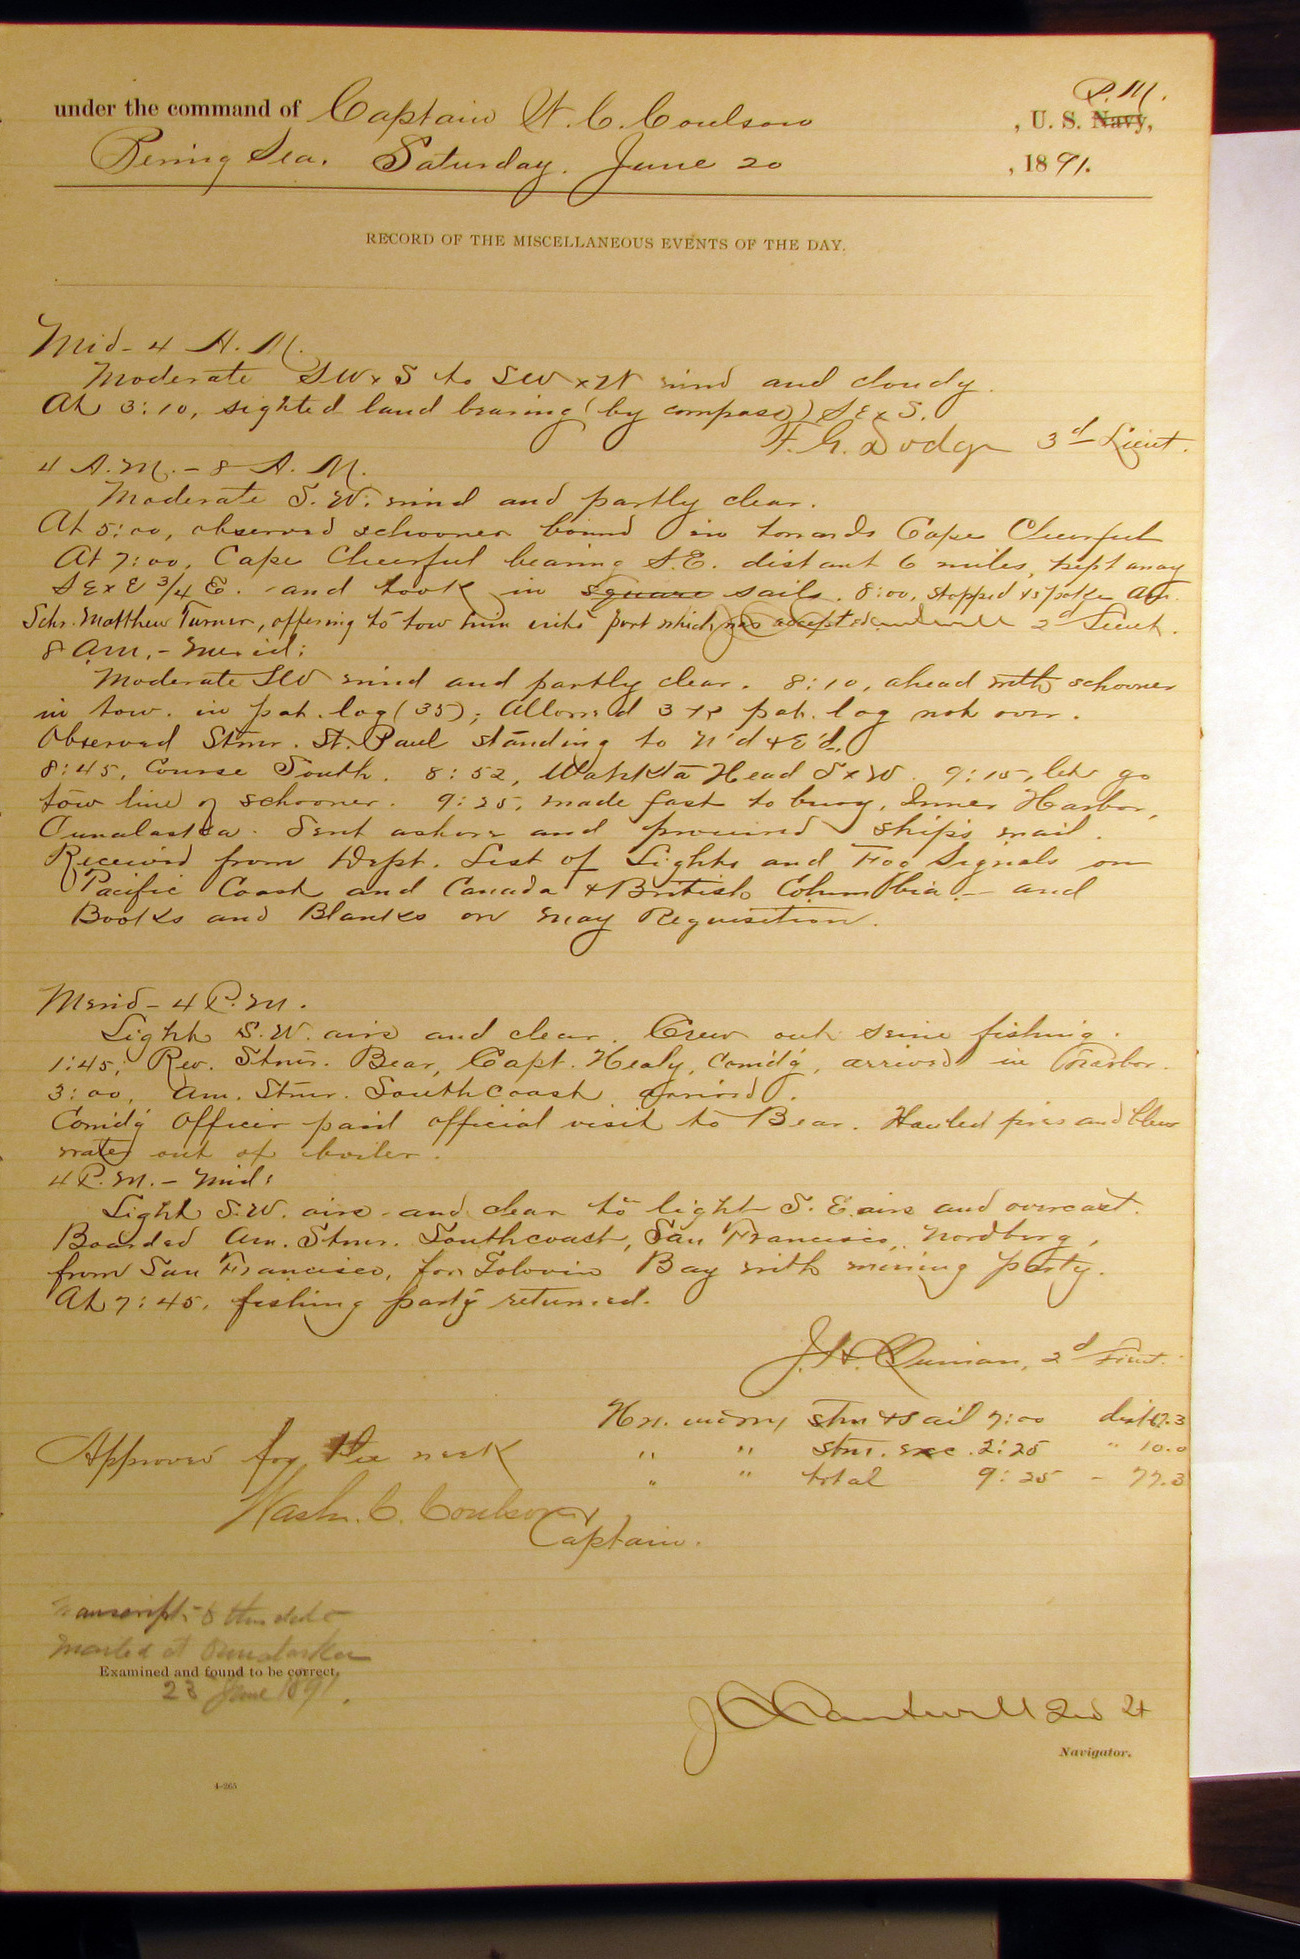 under the command of Captain W. C. Coulson , U. S. Navy, R. M.
Bering Sea. Saturday. June 20 , 1891.
RECORD OF THE MISCELLANEOUS EVENTS OF THE DAY.
Mid - 4 A. M.
Moderate SWxS to SWxW wind and cloudy.
At 3:10, sighted land bearing (by compass) SExS.
F. G. Dodge 3d Lieut.
4 A.M. - 8 A. M.
Moderate S. W. wind and partly clear.
At 5:00, observed schooner bound in towards Cape Cheerful
At 7:00, Cape Cheerful bearing S.E. distant 6 miles, kept away
SExE 3/4 E. and took in square sails. 8:00, stopped & spoke Am.
Schr. Matthew Turner, offering to tow him into port which was accepted. J C Cantwell 2d Lieut.
8 a.m. - Merid:
Moderate SW wind and partly clear. 8:10, ahead with schooner
in tow. in pat. log (35); Allowed 3 pat. log not over.
Observed Stmr. St. Paul standing to N'd & E'd.
8:45, course South. 8:52, Head SxW. 9:15, let go
tow line of schooner. 9:25, made fast to buoy, Inner Harbor,
Ounalaska. Sent ashore and procured ship's mail.
Received from Dept. List of Lights and Fog Signals on
Pacific Coast and Canada & British Columbia - and
Books and Blanks on May Requisition.
Merid - 4 P.M.
Light S.W. airs and clear. Crew out seine fishing.
1:45, Rev. Stmr. Bear, Capt. Healy, Comd'g, arrived in Harbor.
3:00, Am. Stmr. Southcoast arrived.
Comd'g Officer paid official visit to Bear. Hauled fires and blew
water out of boiler.
4 P.M. - Mid:
Light S.W. airs and clear to light S. E. airs and overcast.
Boarded Am. Stmr. Southcoast, San Francisco, Nordberg,
from San Francisco, for Golovin Bay with mining party.
At 7:45, fishing party returned.
J. H. Quinan, 2d Lieut.
Hrs. under way stm & sail 7:00 dist 67.3
" " stm. exc. 2:25 " 10.0
" " total 9:25 - 77.3
Approved for the week
Washn. C. Coulson
Captain.
Transcript to this date
mailed at Ounalaska
Examined and found to be correct.
23 June 1891.
J C Cantwell 2nd Lt
Navigator.
4-265